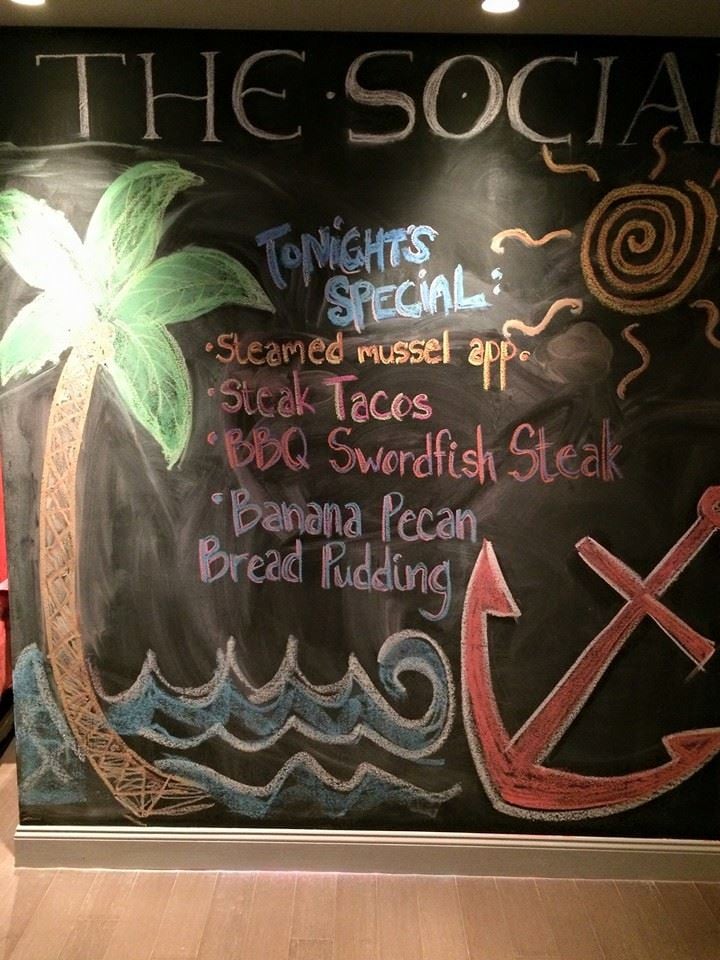 THE · SOCIAL
TONiGHT'S
SPECiAL:
·Steamed mussel app.
·Steak Tacos
·BBQ Swordfish Steak
·Banana Pecan
Bread Pudding